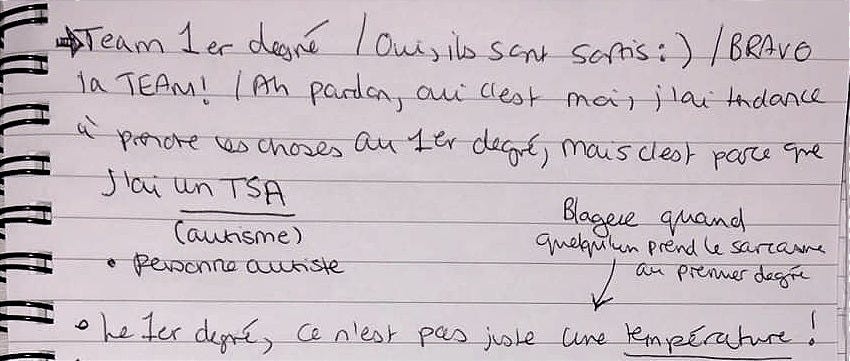 →Team 1er degré / Oui, ils sont sortis :) / BRAVO
la TEAM! / Ah pardon, oui c'est moi, j'ai tendance
à prendre les choses au 1er degré, mais c'est parce que
j'ai un TSA
(autisme)
• personne autiste
Blague quand
quelqu'un prend le sarcasme
au premier degré
• Le 1er degré, ce n'est pas juste une température !